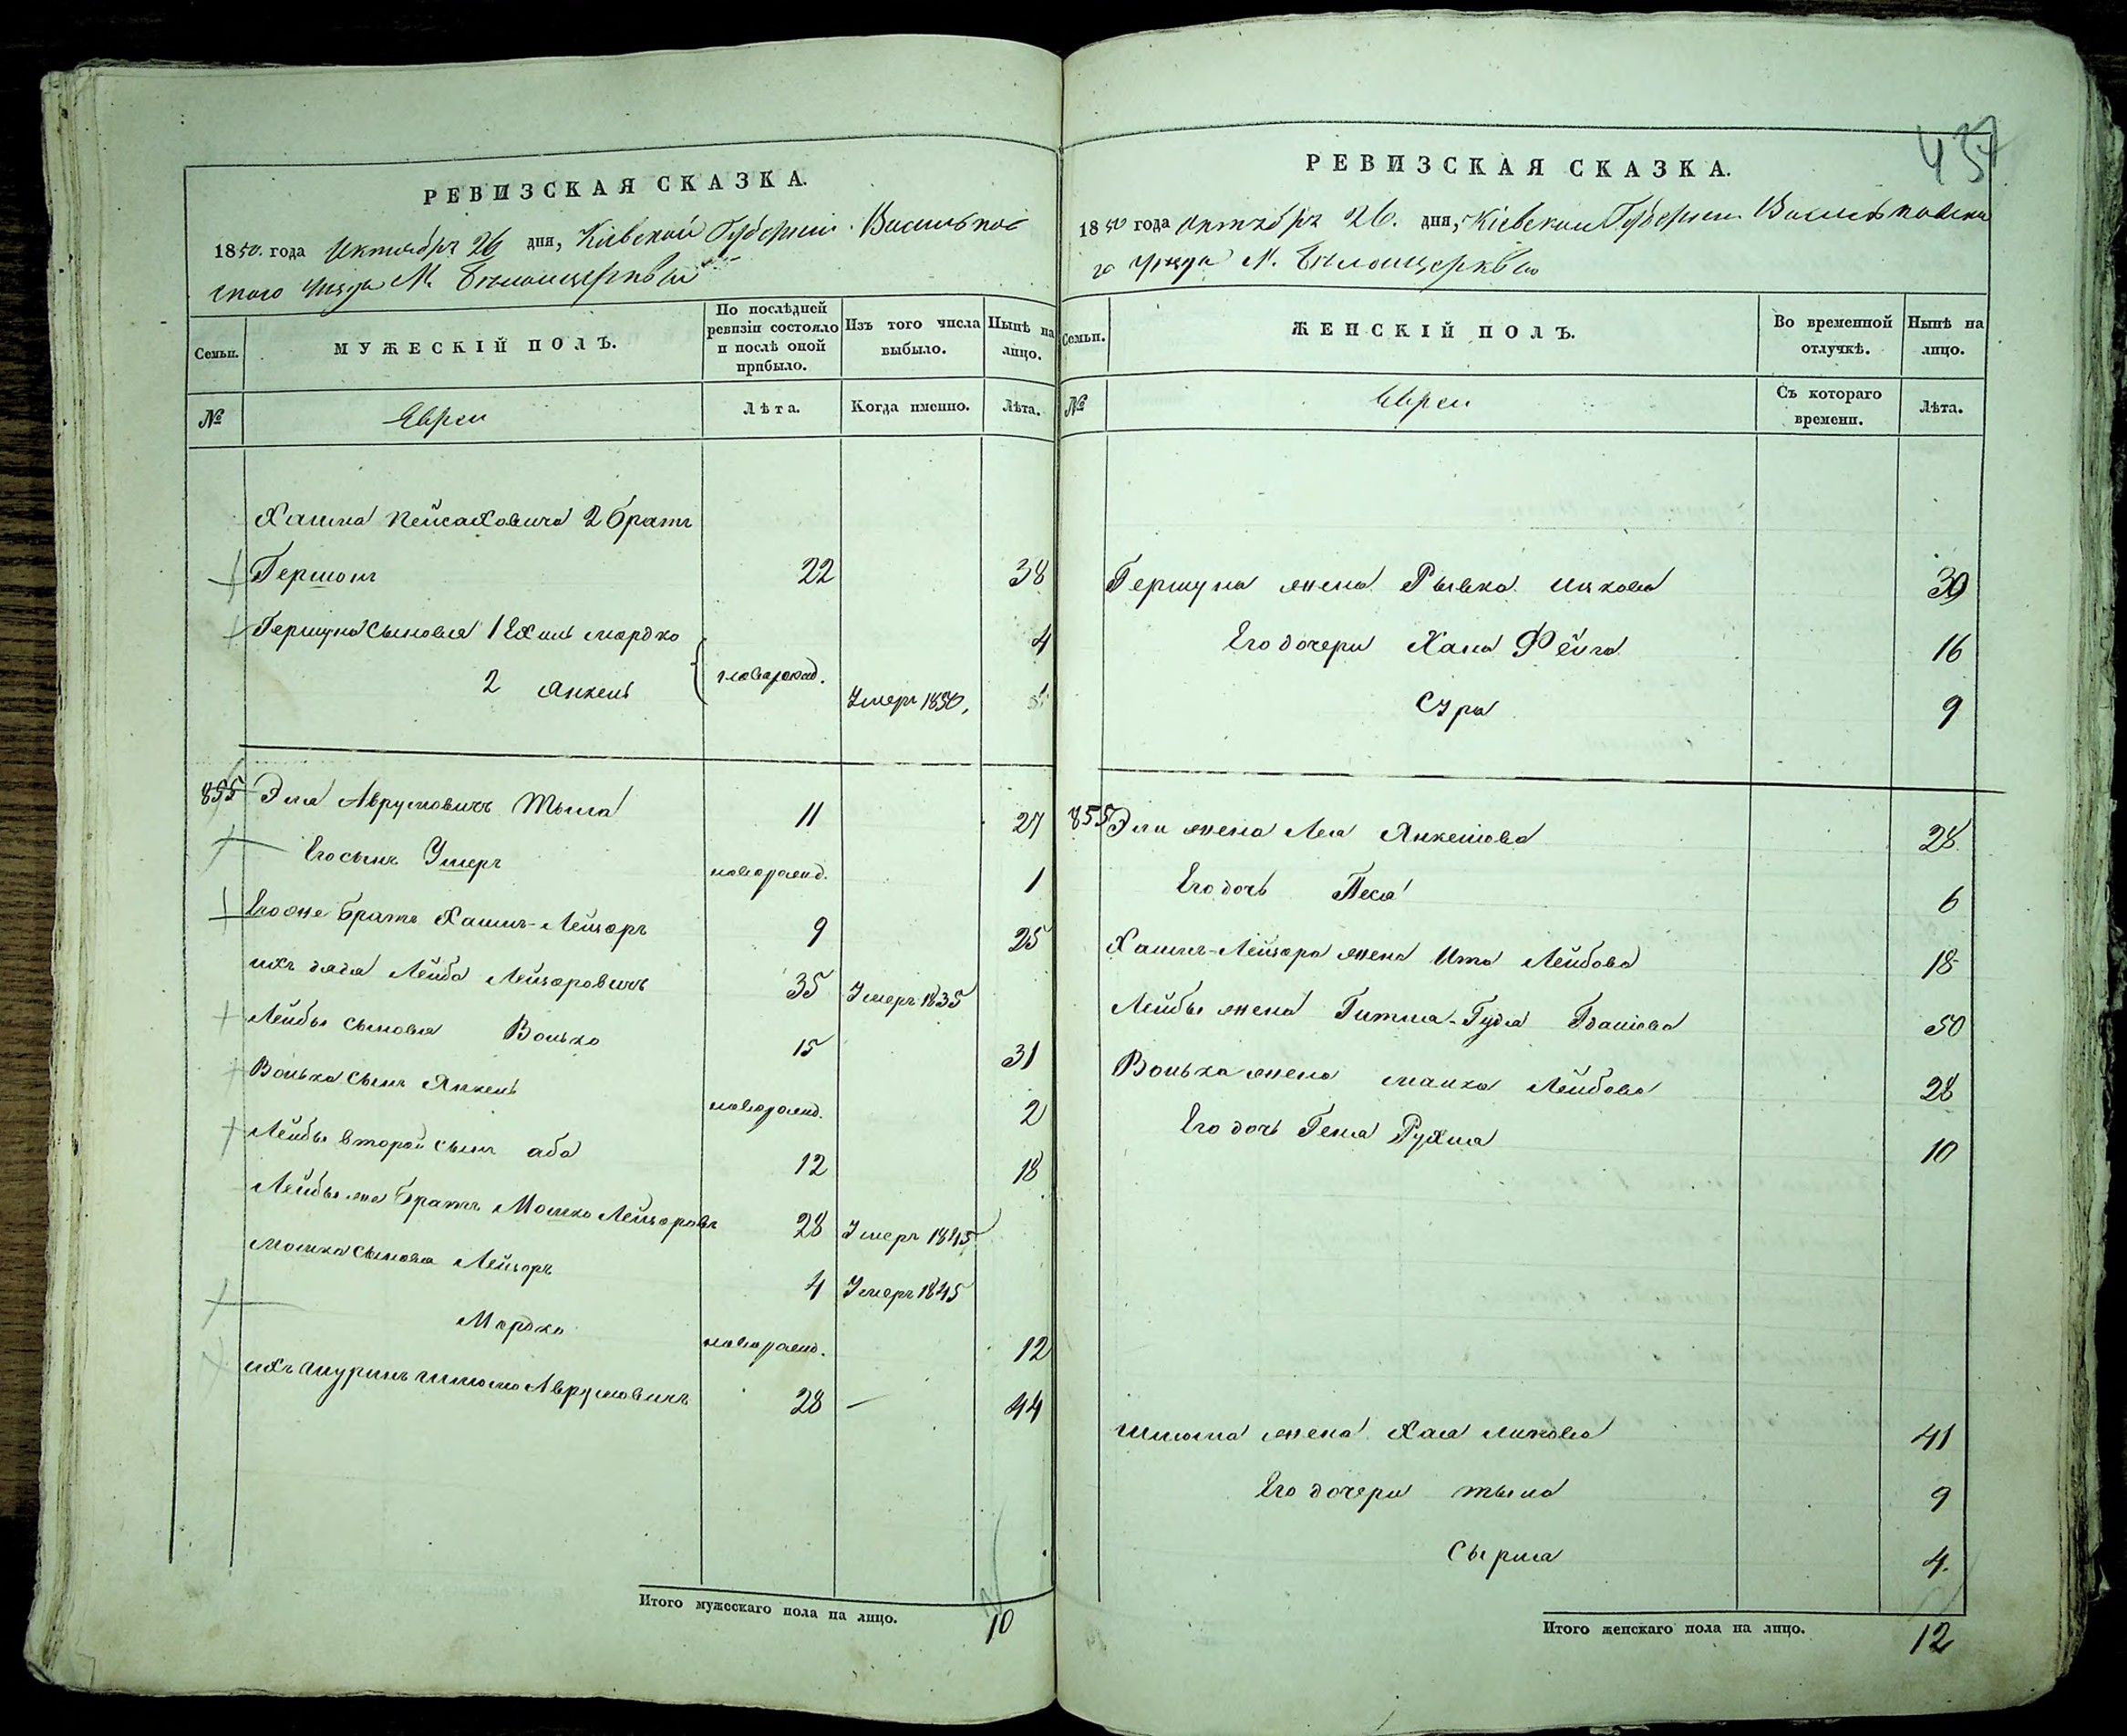 437
РЕВИЗСКАЯ СКАЗКА.
1850. года Октября 26 дня, Кіевской Губерніи Васильков
ского уезда М. Белоцерквы
Семьи. МУЖЕСКІЙ ПОЛЪ. По послѣдней ревизіи состояло и послѣ оной прибыло. Изъ того числа выбыло. Нынѣ на лицо.
№ Евреи Лѣта. Когда именно. Лѣта.
Хаима Пейсаховича 2 братъ
Гершонъ 22 38
Гершуна сыновья 1 Ехиль мордко новорожд. 4
2 Янкель Умеръ 1850,
855 Эля Аврумовичъ 11 27
Его сынъ Ушеръ новорожд. 1
Его же братъ Хаимъ-Лейзоръ 9 25
ихъ дядя Лейба Лейзоровичъ 35 Умеръ 1835
Лейбы сыновья Волько 15 31
Волька сынъ Янкель новорожд. 2
Лейбы второй сынъ аба 12 18
Лейбы же братъ Мошко Лейзоровъ 28 Умеръ 1845
Мошка сыновья Лейзоръ 4 Умеръ 1845
Мордко новорожд. 12
ихъ шуринъ шлиома Аврумовичъ 28 — 44
Итого мужескаго пола на лицо. 10
РЕВИЗСКАЯ СКАЗКА.
1850 года октября 26. дня, Кіевской Губерніи Васильковска
го уезда М. Белоцерквы
Семьи. ЖЕНСКІЙ ПОЛЪ. Во временной отлучкѣ. Нынѣ на лицо.
№ Евреи Съ котораго времени. Лѣта.
Гершуна жена Рывка ицкова 39
Его дочери Хана Фейга 16
Сура 9
855 Эли жена Лея Янкелева 28
Его дочь Песя 6
Хаимъ-Лейзора жена Ита Лейбова 18
Лейбы жена Гитля-Гудя 50
Волька жена малка Лейбова 28
Его дочь Геня Рухля 10
шлиома жена Хая 41
Его дочери 9
Сырля 4.
Итого женскаго пола на лицо. 12